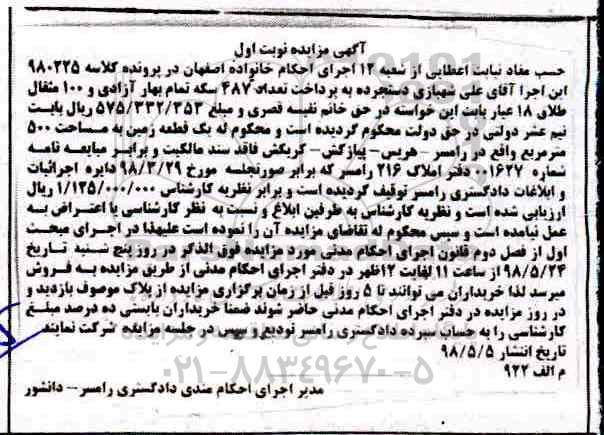 آگهی مزایده نوبت اول
حسب مفاد نیابت اعطایی از شعبه ۱۲ اجرای احکام خانواده اصفهان در پرونده کلاسه ۹۸۰۲۲۵
این اجرا آقای علی شهبازی دستجرده به پرداخت تعداد ۴۸۷ سکه تمام بهار آزادی و ۱۰۰ مثقال
طلای ۱۸ عیار بابت این خواسته در حق خانم نفسه قصری و مبلغ ۵۷۵/۳۳۲/۳۵۳ ریال بابت
نیم عشر دولتی در حق دولت محکوم گردیده است و محکوم له یک قطعه زمین به مساحت ۵۰۰
مترمربع واقع در رامسر – هریس – پیازکش – کربکش فاقد سند مالکیت و برابر مبایعه نامه
شماره ۰۰۱۶۲۷ دفتر املاک ۲۱۶ رامسر که برابر صورتجلسه مورخ ۹۸/۳/۲۹ دایره اجرائیات
و ابلاغات دادگستری رامسر توقیف گردیده است و برابر نظریه کارشناس ۱/۱۲۵/۰۰۰/۰۰۰ ریال
ارزیابی شده است و نظریه کارشناس به طرفین ابلاغ و نسبت به نظر کارشناسی یا اعتراض به
عمل نیامده است و سپس محکوم له تقاضای مزایده آن را نموده است علیهذا در اجرای مبحث
اول از فصل دوم قانون اجرای احکام مدنی مورد مزایده فوق الذکر در روز پنج شنبه تاریخ
۹۸/۵/۲۴ از ساعت ۱۱ لغایت ۱۲ ظهر در دفتر اجرای احکام مدنی از طریق مزایده به فروش
میرسد لذا خریداران می توانند تا ۵ روز قبل از زمان برگزاری مزایده از پلاک موصوف بازدید و
در روز مزایده در دفتر اجرای احکام مدنی حاضر شوند ضمنا خریداران بایستی ده درصد مبلغ
کارشناسی را به حساب سپرده دادگستری رامسر تودیع و سپس در جلسه مزایده شرکت نمایند
تاریخ انتشار ۹۸/۵/۵
م الف ۹۲۲
مدیر اجرای احکام مدنی دادگستری رامسر – دانشور
۰۲۱-۸۸۳۴۹۶۷۰-۵